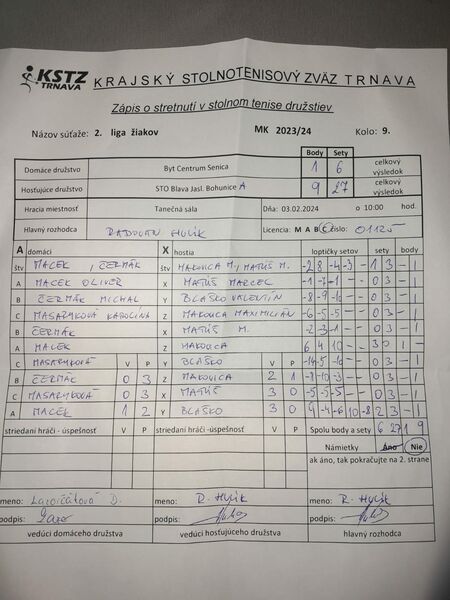 KSTZ TRNAVA KRAJSKÝ STOLNOTENISOVÝ ZVÄZ TRNAVA
Zápis o stretnutí v stolnom tenise družstiev
Názov súťaže: 2. liga žiakov MK 2023/24 Kolo: 9.
Body Sety
Domáce družstvo Byt Centrum Senica 1 6 celkový výsledok
Hosťujúce družstvo STO Blava Jasl. Bohunice A 9 27 celkový výsledok
Hracia miestnosť Tanečná sála Dňa: 03.02.2024 o 10:00 hod.
Hlavný rozhodca RADOVAN HULÍK Licencia: M A B C číslo: 01125
A domáci X hostia loptičky setov sety body
štv MACEK, ČERMÁK štv MAKOVICA M., MATÚŠ M. -2 8 -4 -3 - 1 3 - 1
A MACEK OLIVER X MATÚŠ MARCEL -1 -7 -1 - - 0 3 - 1
B ČERMÁK MICHAL Y BLAŠKO VALENTÍN -8 -9 -10 - - 0 3 - 1
C MASARYKOVÁ KAROLÍNA Z MAKOVICA MAXIMILIÁN -6 -5 -5 - - 0 3 - 1
B ČERMÁK X MATÚŠ M. -2 -3 -1 - - 0 3 - 1
A MACEK Z MAKOVICA 6 4 10 - - 3 0 1 -
C MASARYKOVÁ V P Y BLAŠKO V P -14 -5 -10 - - 0 3 - 1
B ČERMÁK 0 3 Z MAKOVICA 2 1 -7 -10 -3 - - 0 3 - 1
C MASARYKOVÁ 0 3 X MATÚŠ 3 0 -5 -5 -5 - - 0 3 - 1
A MACEK 1 2 Y BLAŠKO 3 0 9 -4 -6 10 -8 2 3 - 1
striedaní hráči - úspešnosť V P striedaní hráči - úspešnosť V P Spolu body a sety 6 27 1 9
Námietky Áno Nie
ak áno, tak pokračujte na 2. strane
meno: D. meno: R. HULÍK meno: R. HULÍK
podpis: podpis: podpis:
vedúci domáceho družstva vedúci hosťujúceho družstva hlavný rozhodca